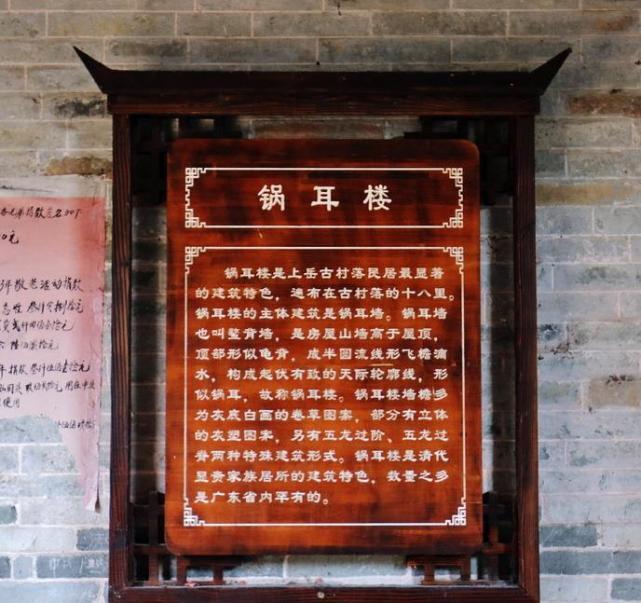 锅耳楼
锅耳楼是上岳古村落民居最显著
的建筑特色，遍布在古村落的十八里。
锅耳楼的主体建筑是锅耳墙。锅耳墙
也叫鳌背墙，是房屋山墙高于屋顶，
顶部形似龟背，成半圆流线形飞檐滴
水，构成起伏有致的天际轮廓线，形
似锅耳，故称锅耳楼。锅耳楼墙檐多
为灰底白画的卷草图案，部分有立体
的灰塑图案，另有五龙过阶、五龙过
脊两种特殊建筑形式。锅耳楼是清代
显贵家族居所的建筑特色，数量之多
是广东省内罕有的。